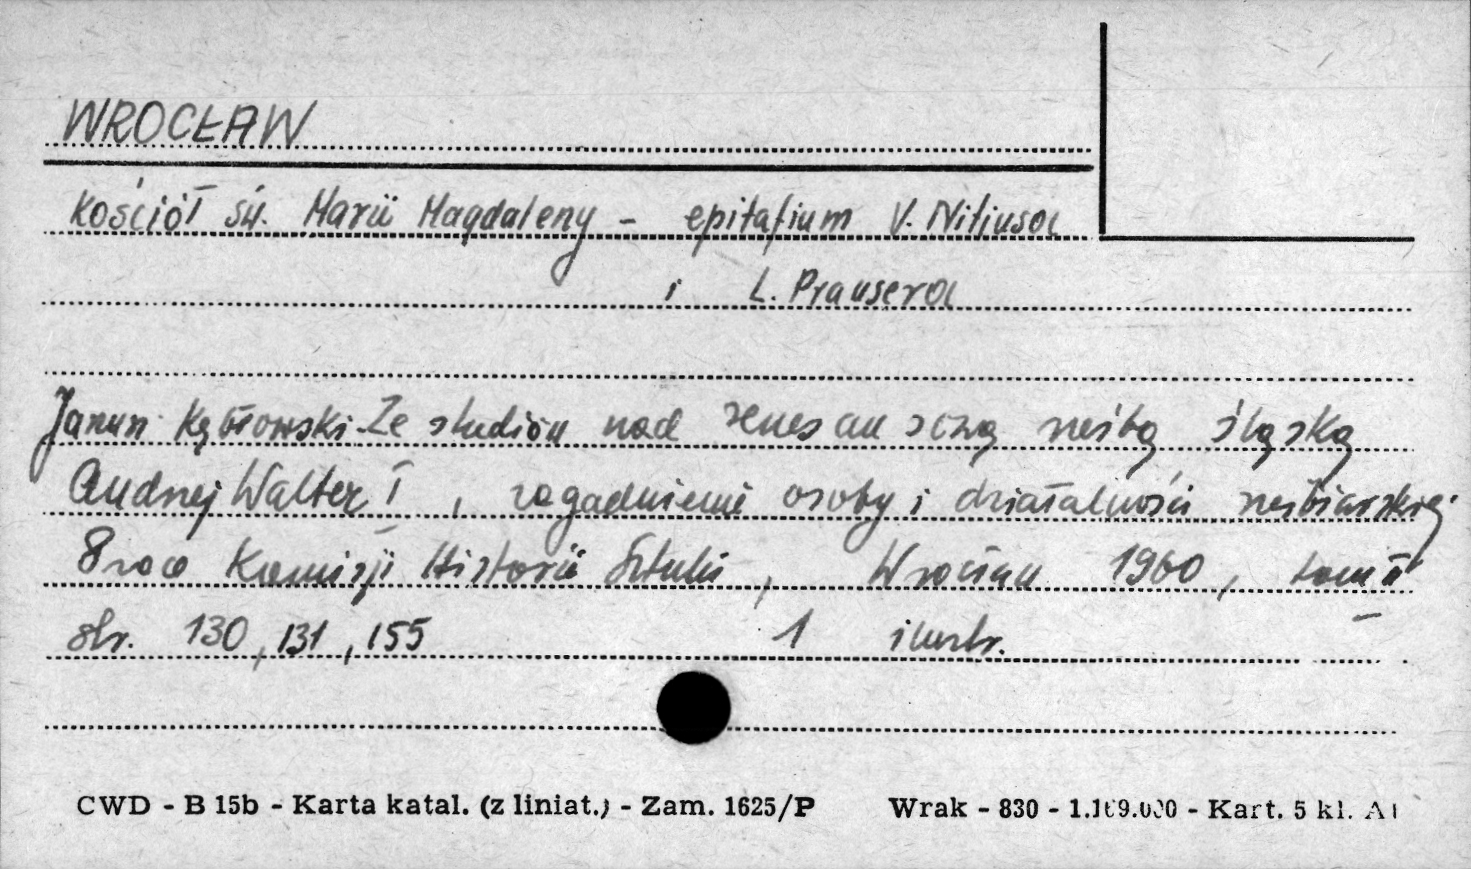 WROCŁAW
kościół św. Marii Magdaleny - epitafium V. Nitiusa
i L. Prausera
Janusz Kębłowski. Ze studiów nad renesansową rzeźbą śląską
Andrzej Walter I, zagadnienie osoby i działalności rzeźbiarskiej
Prace Komisji Historii Sztuki, Wrocław 1960, tom II
str. 130, 131, 155 1 ilustr.
CWD - B 15b - Karta katal. (z liniat.) - Zam. 1625/P Wrak - 830 - - Kart. 5 kl.